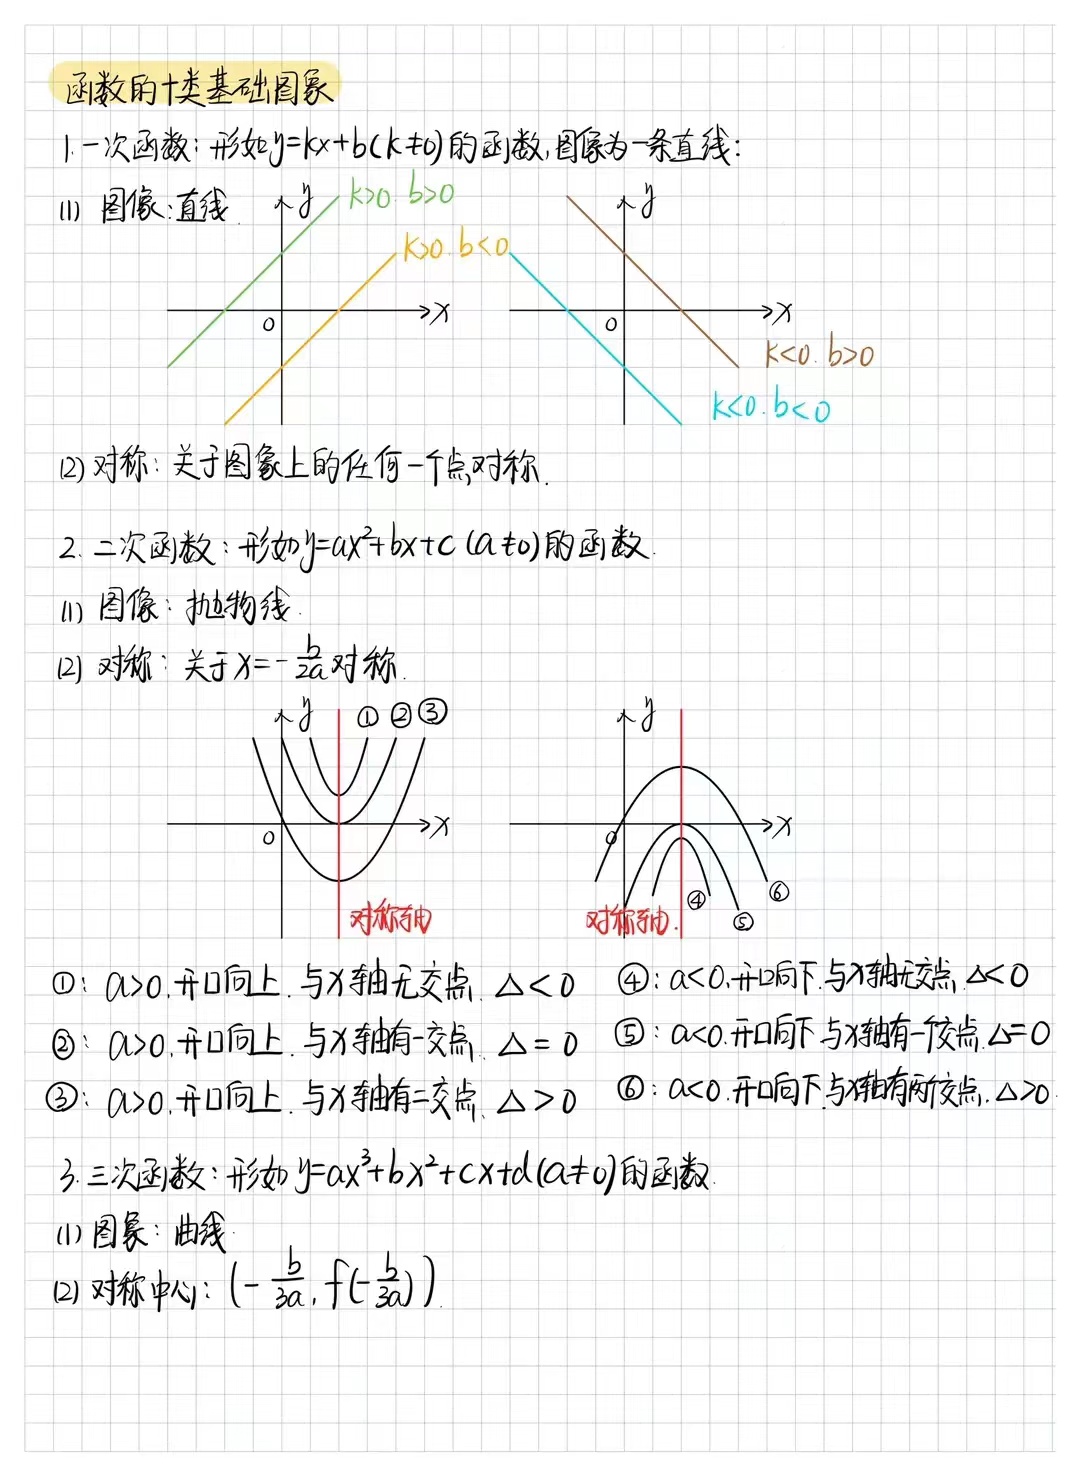 函数的十类基础图象
1.一次函数:形如y=kx+b(k≠0)的函数,图象为一条直线:
(1) 图像:直线.
y k>0.b>0
k>0.b<0
x
0
y
x
0
k<0.b>0
k<0.b<0
(2) 对称:关于图象上的任何一个点对称.
2.二次函数:形如y=ax²+bx+c(a≠0)的函数.
(1) 图像:抛物线.
(2) 对称:关于x=-b/2a对称.
y ① ② ③
x
0
对称轴
y
x
0
④ ⑤ ⑥
对称轴.
①: a>0.开口向上.与x轴无交点.△<0
②: a>0.开口向上.与x轴有一交点.△=0
③: a>0.开口向上.与x轴有二交点.△>0
④: a<0.开口向下.与x轴无交点.△<0
⑤: a<0.开口向下与x轴有一个交点.△=0
⑥: a<0.开口向下.与x轴有两个交点.△>0.
3.三次函数:形如y=ax³+bx²+cx+d(a≠0)的函数.
(1) 图象:曲线.
(2) 对称中心:(-b/3a,f(-b/3a)).